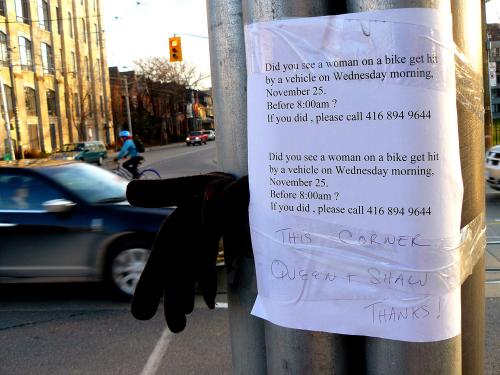 Did you see a woman on a bike get hit
by a vehicle on Wednesday morning,
November 25.
Before 8:00am ?
If you did , please call 416 894 9644
Did you see a woman on a bike get hit
by a vehicle on Wednesday morning,
November 25.
Before 8:00am ?
If you did , please call 416 894 9644
THIS CORNER
QUEEN + SHAW
THANKS!